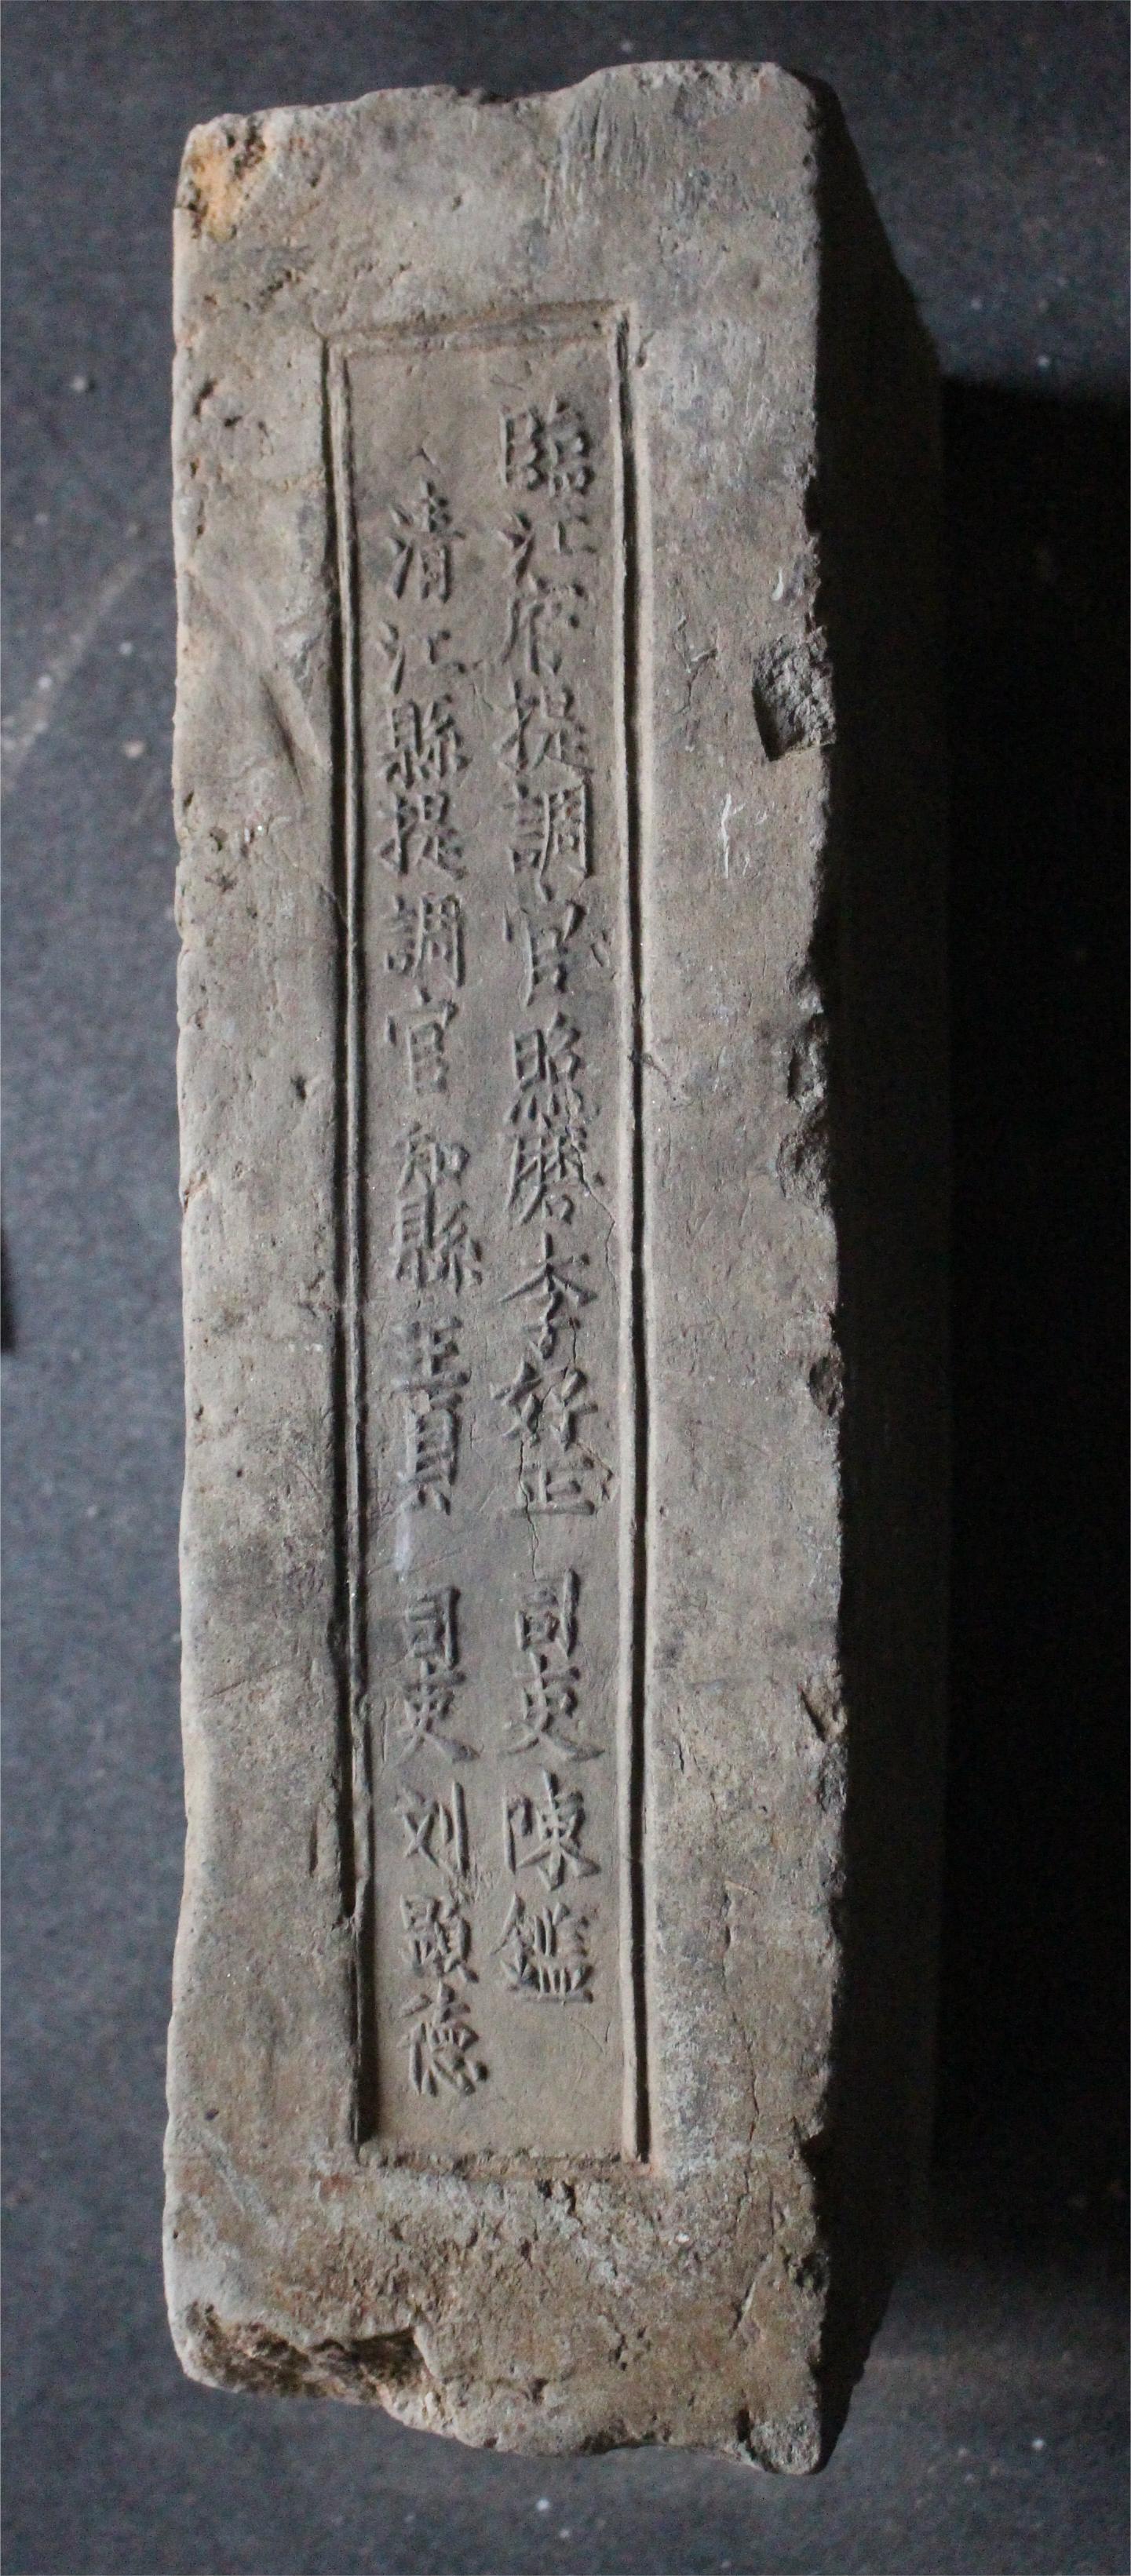 臨江府提調官照磨李好正司吏陳鑑
清江縣提調官知縣王員司吏刘顕德